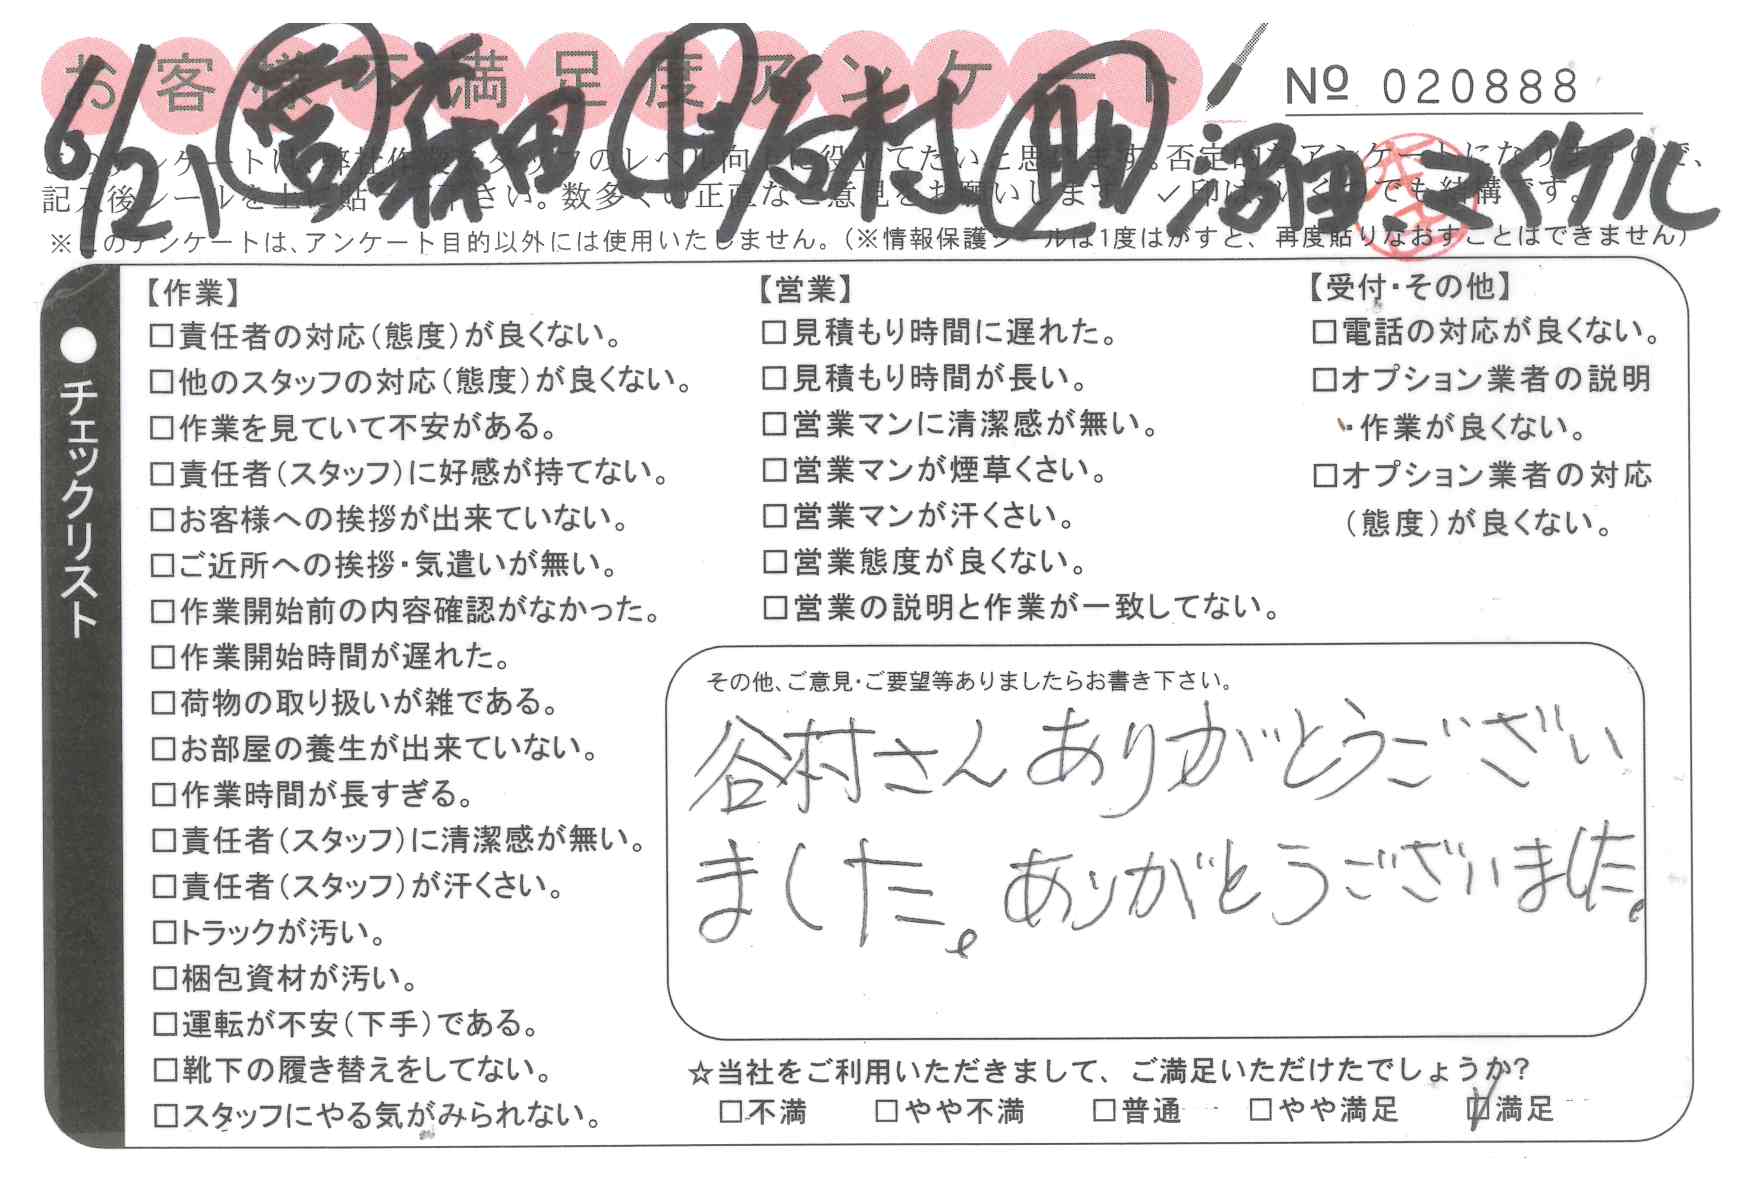 お客様不満足度アンケート
№ 020888
6/21 営 森田 谷村 沼田
このアンケートは、弊社作業スタッフのレベル向上に役立てたいと思います。否定的なアンケートになりますので、
記入後シールを上に貼って下さい。数多くの正直なご意見をお願いします。✓印はいくつでも結構です。
※このアンケートは、アンケート目的以外には使用いたしません。(※情報保護シールは1度はがすと、再度貼りなおすことはできません)
●チェックリスト
【作業】
□責任者の対応(態度)が良くない。
□他のスタッフの対応(態度)が良くない。
□作業を見ていて不安がある。
□責任者(スタッフ)に好感が持てない。
□お客様への挨拶が出来ていない。
□ご近所への挨拶・気遣いが無い。
□作業開始前の内容確認がなかった。
□作業開始時間が遅れた。
□荷物の取り扱いが雑である。
□お部屋の養生が出来ていない。
□作業時間が長すぎる。
□責任者(スタッフ)に清潔感が無い。
□責任者(スタッフ)が汗くさい。
□トラックが汚い。
□梱包資材が汚い。
□運転が不安(下手)である。
□靴下の履き替えをしてない。
□スタッフにやる気がみられない。
【営業】
□見積もり時間に遅れた。
□見積もり時間が長い。
□営業マンに清潔感が無い。
□営業マンが煙草くさい。
□営業マンが汗くさい。
□営業態度が良くない。
□営業の説明と作業が一致してない。
【受付・その他】
□電話の対応が良くない。
□オプション業者の説明
・作業が良くない。
□オプション業者の対応
(態度)が良くない。
その他、ご意見・ご要望等ありましたらお書き下さい。
谷村さんありがとうござい
ました。ありがとうございました。
☆当社をご利用いただきまして、ご満足いただけたでしょうか?
□不満 □やや不満 □普通 □やや満足 ☑満足